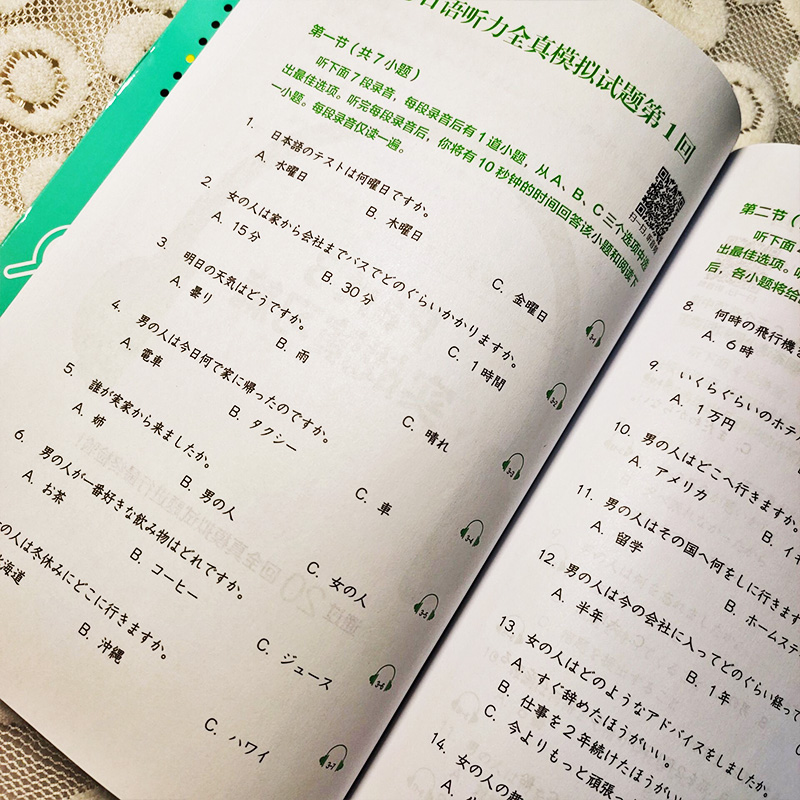 日语听力全真模拟试题第1回
第一节（共7小题）
听下面7段录音，每段录音后有1道小题，从A、B、C三个选项中选
出最佳选项。听完每段录音后，你将有10秒钟的时间回答该小题和阅读下
一小题。每段录音仅读一遍。
扫一扫
1. 日本語のテストは何曜日ですか。
A. 水曜日 B. 木曜日 C. 金曜日
3-1
2. 女の人は家から会社までバスでどのぐらいかかりますか。
A. 15分 B. 30分 C. 1時間
3-2
3. 明日の天気はどうですか。
A. 曇り B. 雨 C. 晴れ
3-3
4. 男の人は今日何で家に帰ったのですか。
A. 電車 B. タクシー C. 車
3-4
5. 誰が実家から来ましたか。
A. 姉 B. 男の人 C. 女の人
3-5
6. 男の人が一番好きな飲み物はどれですか。
A. お茶 B. コーヒー C. ジュース
3-6
の人は冬休みにどこに行きますか。
海道 B. 沖縄 C. ハワイ
3-7
第二节（
听下面
出最佳选项。
后，各小题将给
8. 何時の飛行機
A. 6時
9. いくらぐらいのホテル
A. 1万円
10. 男の人はどこへ行きますか。
A. アメリカ B. イギ
11. 男の人はその国へ何をしに行きます
A. 留学 B. ホームステ
12. 男の人は今の会社に入ってどのぐらい経って
A. 半年 B. 1年
13. 女の人はどのようなアドバイスをしましたか。
A. すぐ辞めたほうがいい。
B. 仕事を2年続けたほうがいい
C. 今よりもっと頑張っ
14. 女の人の趣
A.